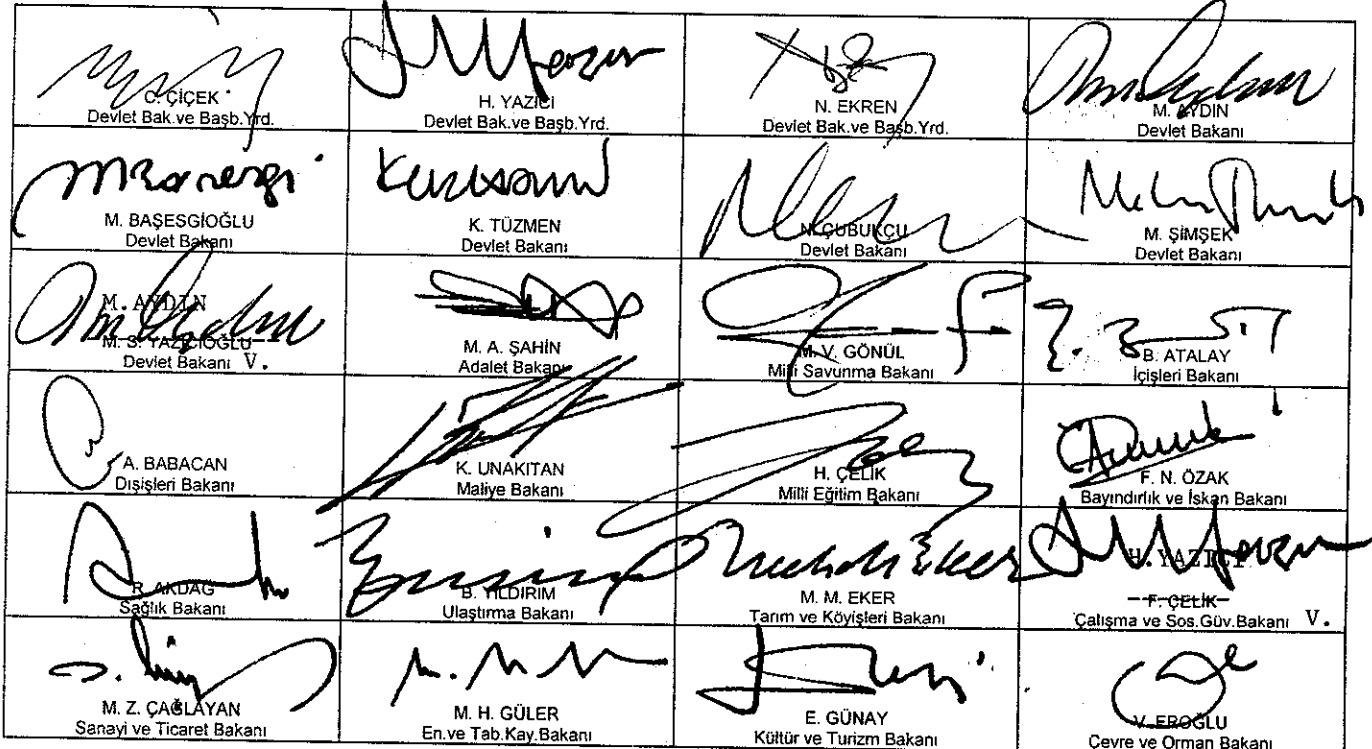 C. ÇİÇEK
Devlet Bak.ve Başb.Yrd.
H. YAZICI
Devlet Bak.ve Başb.Yrd.
N. EKREN
Devlet Bak.ve Başb.Yrd.
M. AYDIN
Devlet Bakanı
M. BAŞESGİOĞLU
Devlet Bakanı
K. TÜZMEN
Devlet Bakanı
N. ÇUBUKÇU
Devlet Bakanı
M. ŞİMŞEK
Devlet Bakanı
M. AYDIN
M. S. YAZICIOĞLU
Devlet Bakanı V.
M. A. ŞAHİN
Adalet Bakanı
M. V. GÖNÜL
Milli Savunma Bakanı
B. ATALAY
İçişleri Bakanı
A. BABACAN
Dışişleri Bakanı
K. UNAKITAN
Maliye Bakanı
H. ÇELİK
Milli Eğitim Bakanı
F. N. ÖZAK
Bayındırlık ve İskan Bakanı
R. AKDAĞ
Sağlık Bakanı
B. YILDIRIM
Ulaştırma Bakanı
M. M. EKER
Tarım ve Köyişleri Bakanı
H. YAZICI
F. ÇELİK
Çalışma ve Sos.Güv.Bakanı V.
M. Z. ÇAĞLAYAN
Sanayi ve Ticaret Bakanı
M. H. GÜLER
En.ve Tab.Kay.Bakanı
E. GÜNAY
Kültür ve Turizm Bakanı
V. EROĞLU
Çevre ve Orman Bakanı